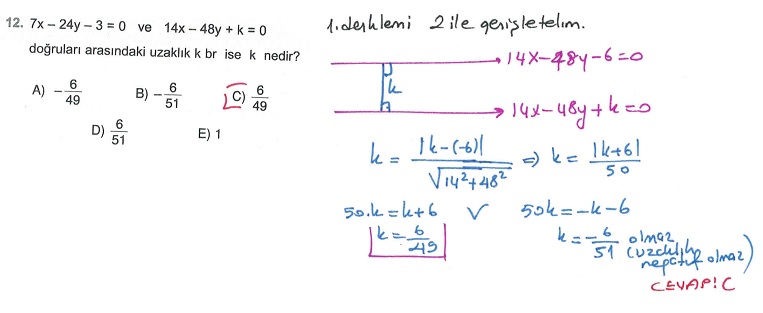 12. 7x – 24y – 3 = 0 ve 14x – 48y + k = 0
doğruları arasındaki uzaklık k br ise k nedir?
A) – 6/49 B) – 6/51 C) 6/49
D) 6/51 E) 1
1. denklemi 2 ile genişletelim.
14x-48y-6=0
k
14x-48y+k=0
k = |k-(-6)| / √14²+48² ⇒ k = |k+6| / 50
50.k=k+6 V 50k=-k-6
k=6/49 k=-6/51 olmaz
(uzaklık
negatif olmaz)
CEVAP: C